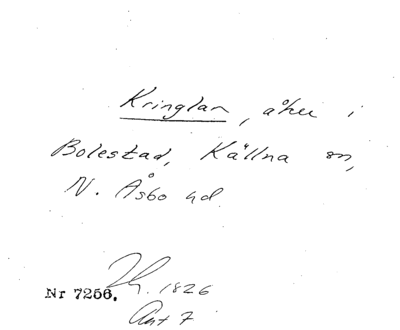 Kringlan, åker i
Bolestad, Källna sn,
N. Åsbo hd.
Lh. 1826
Nr 7256.
Akt 7